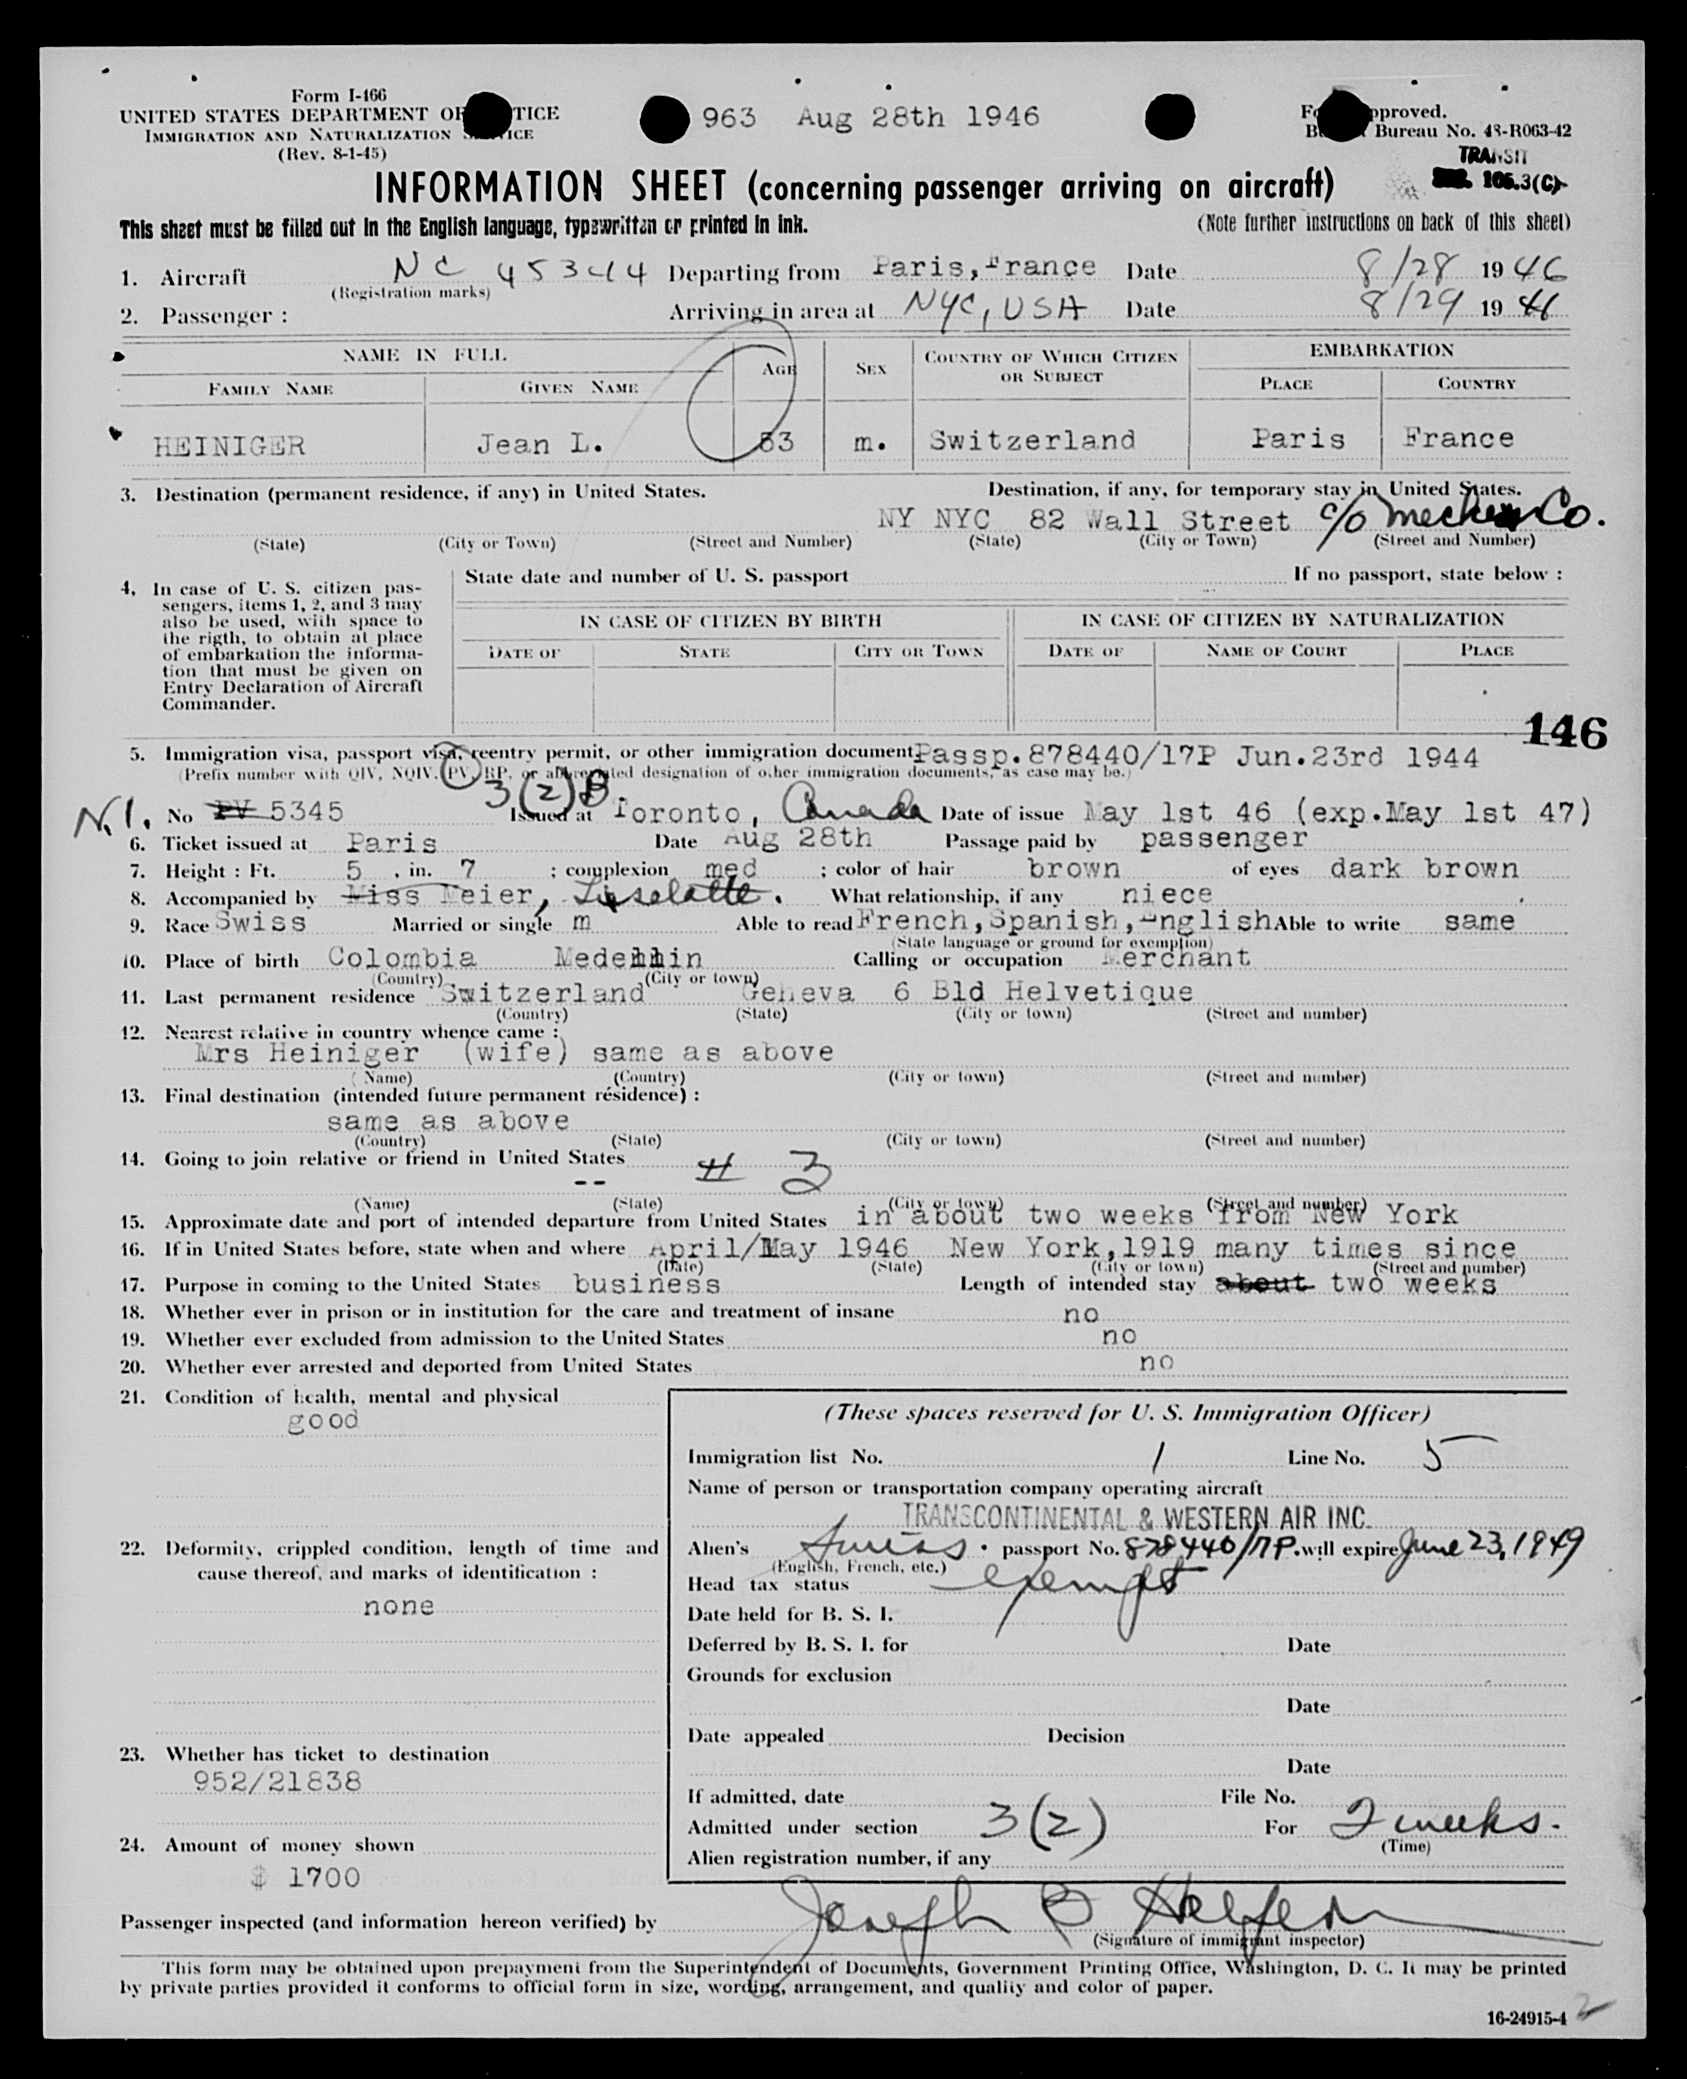 Form I-466
UNITED STATES DEPARTMENT OF TICE
IMMIGRATION AND NATURALIZATION ICE
(Rev. 8-1-45)
963 Aug 28th 1946
pproved.
Bureau No. 43-R063-42
TRANSIT
105.3(C)
INFORMATION SHEET (concerning passenger arriving on aircraft)
This sheet must be filled out in the English language, typewritten or printed in ink.
(Note further instructions on back of this sheet)
1. Aircraft NC 45344 Departing from Paris, France Date 8/28 1946
(Registration marks)
2. Passenger : Arriving in area at NYC, USA Date 8/29 1946
NAME IN FULL AGE SEX COUNTRY OF WHICH CITIZEN OR SUBJECT EMBARKATION
FAMILY NAME GIVEN NAME PLACE COUNTRY
HEINIGER Jean L. 53 m. Switzerland Paris France
3. Destination (permanent residence, if any) in United States. Destination, if any, for temporary stay in United States.
NY NYC 82 Wall Street c/o Co.
(State) (City or Town) (Street and Number) (State) (City or Town) (Street and Number)
4. In case of U. S. citizen pas-
sengers, items 1, 2, and 3 may
also be used, with space to
the rigth, to obtain at place
of embarkation the informa-
tion that must be given on
Entry Declaration of Aircraft
Commander.
State date and number of U. S. passport If no passport, state below :
IN CASE OF CITIZEN BY BIRTH IN CASE OF CITIZEN BY NATURALIZATION
DATE OF STATE CITY OR TOWN DATE OF NAME OF COURT PLACE
146
5. Immigration visa, passport visa, reentry permit, or other immigration document Passp. 878440/17P Jun.23rd 1944
(Prefix number with QIV, NQIV, PV, RP, or abbreviated designation of other immigration documents, as case may be.)
3(2)B.
N.I. No PV 5345 Issued at Toronto, Canada Date of issue May 1st 46 (exp.May 1st 47)
6. Ticket issued at Paris Date Aug 28th Passage paid by passenger
7. Height : Ft. 5 , in. 7 ; complexion med ; color of hair brown of eyes dark brown
8. Accompanied by Miss Meier, Liselotte. What relationship, if any niece
9. Race Swiss Married or single m Able to read French, Spanish, English Able to write same
(State language or ground for exemption)
10. Place of birth Colombia Medellin Calling or occupation Merchant
(Country) (City or town)
11. Last permanent residence Switzerland Geneva 6 Bld Helvetique
(Country) (State) (City or town) (Street and number)
12. Nearest relative in country whence came :
Mrs Heiniger (wife) same as above
(Name) (Country) (City or town) (Street and number)
13. Final destination (intended future permanent résidence) :
same as above
(Country) (State) (City or town) (Street and number)
14. Going to join relative or friend in United States # 3
--
(Name) (State) (City or town) (Street and number)
15. Approximate date and port of intended departure from United States in about two weeks from New York
16. If in United States before, state when and where April/May 1946 New York,1919 many times since
(Date) (State) (City or town) (Street and number)
17. Purpose in coming to the United States business Length of intended stay about two weeks
18. Whether ever in prison or in institution for the care and treatment of insane no
19. Whether ever excluded from admission to the United States no
20. Whether ever arrested and deported from United States no
21. Condition of health, mental and physical
good
22. Deformity, crippled condition, length of time and
cause thereof, and marks of identification :
none
23. Whether has ticket to destination
952/21838
24. Amount of money shown
$ 1700
(These spaces reserved for U. S. Immigration Officer)
Immigration list No. 1 Line No. 5
Name of person or transportation company operating aircraft
TRANSCONTINENTAL & WESTERN AIR INC.
Alien's Swiss. passport No. 878440/17P. will expire June 23, 1949
(English, French, etc.)
Head tax status exempt
Date held for B. S. I.
Deferred by B. S. I. for Date
Grounds for exclusion
Date
Date appealed Decision
Date
If admitted, date File No.
Admitted under section 3(2) For 2 weeks.
(Time)
Alien registration number, if any
Passenger inspected (and information hereon verified) by Joseph B
(Signature of immigrant inspector)
This form may be obtained upon prepayment from the Superintendent of Documents, Government Printing Office, Washington, D. C. It may be printed
by private parties provided it conforms to official form in size, wording, arrangement, and quality and color of paper.
16-24915-4
2